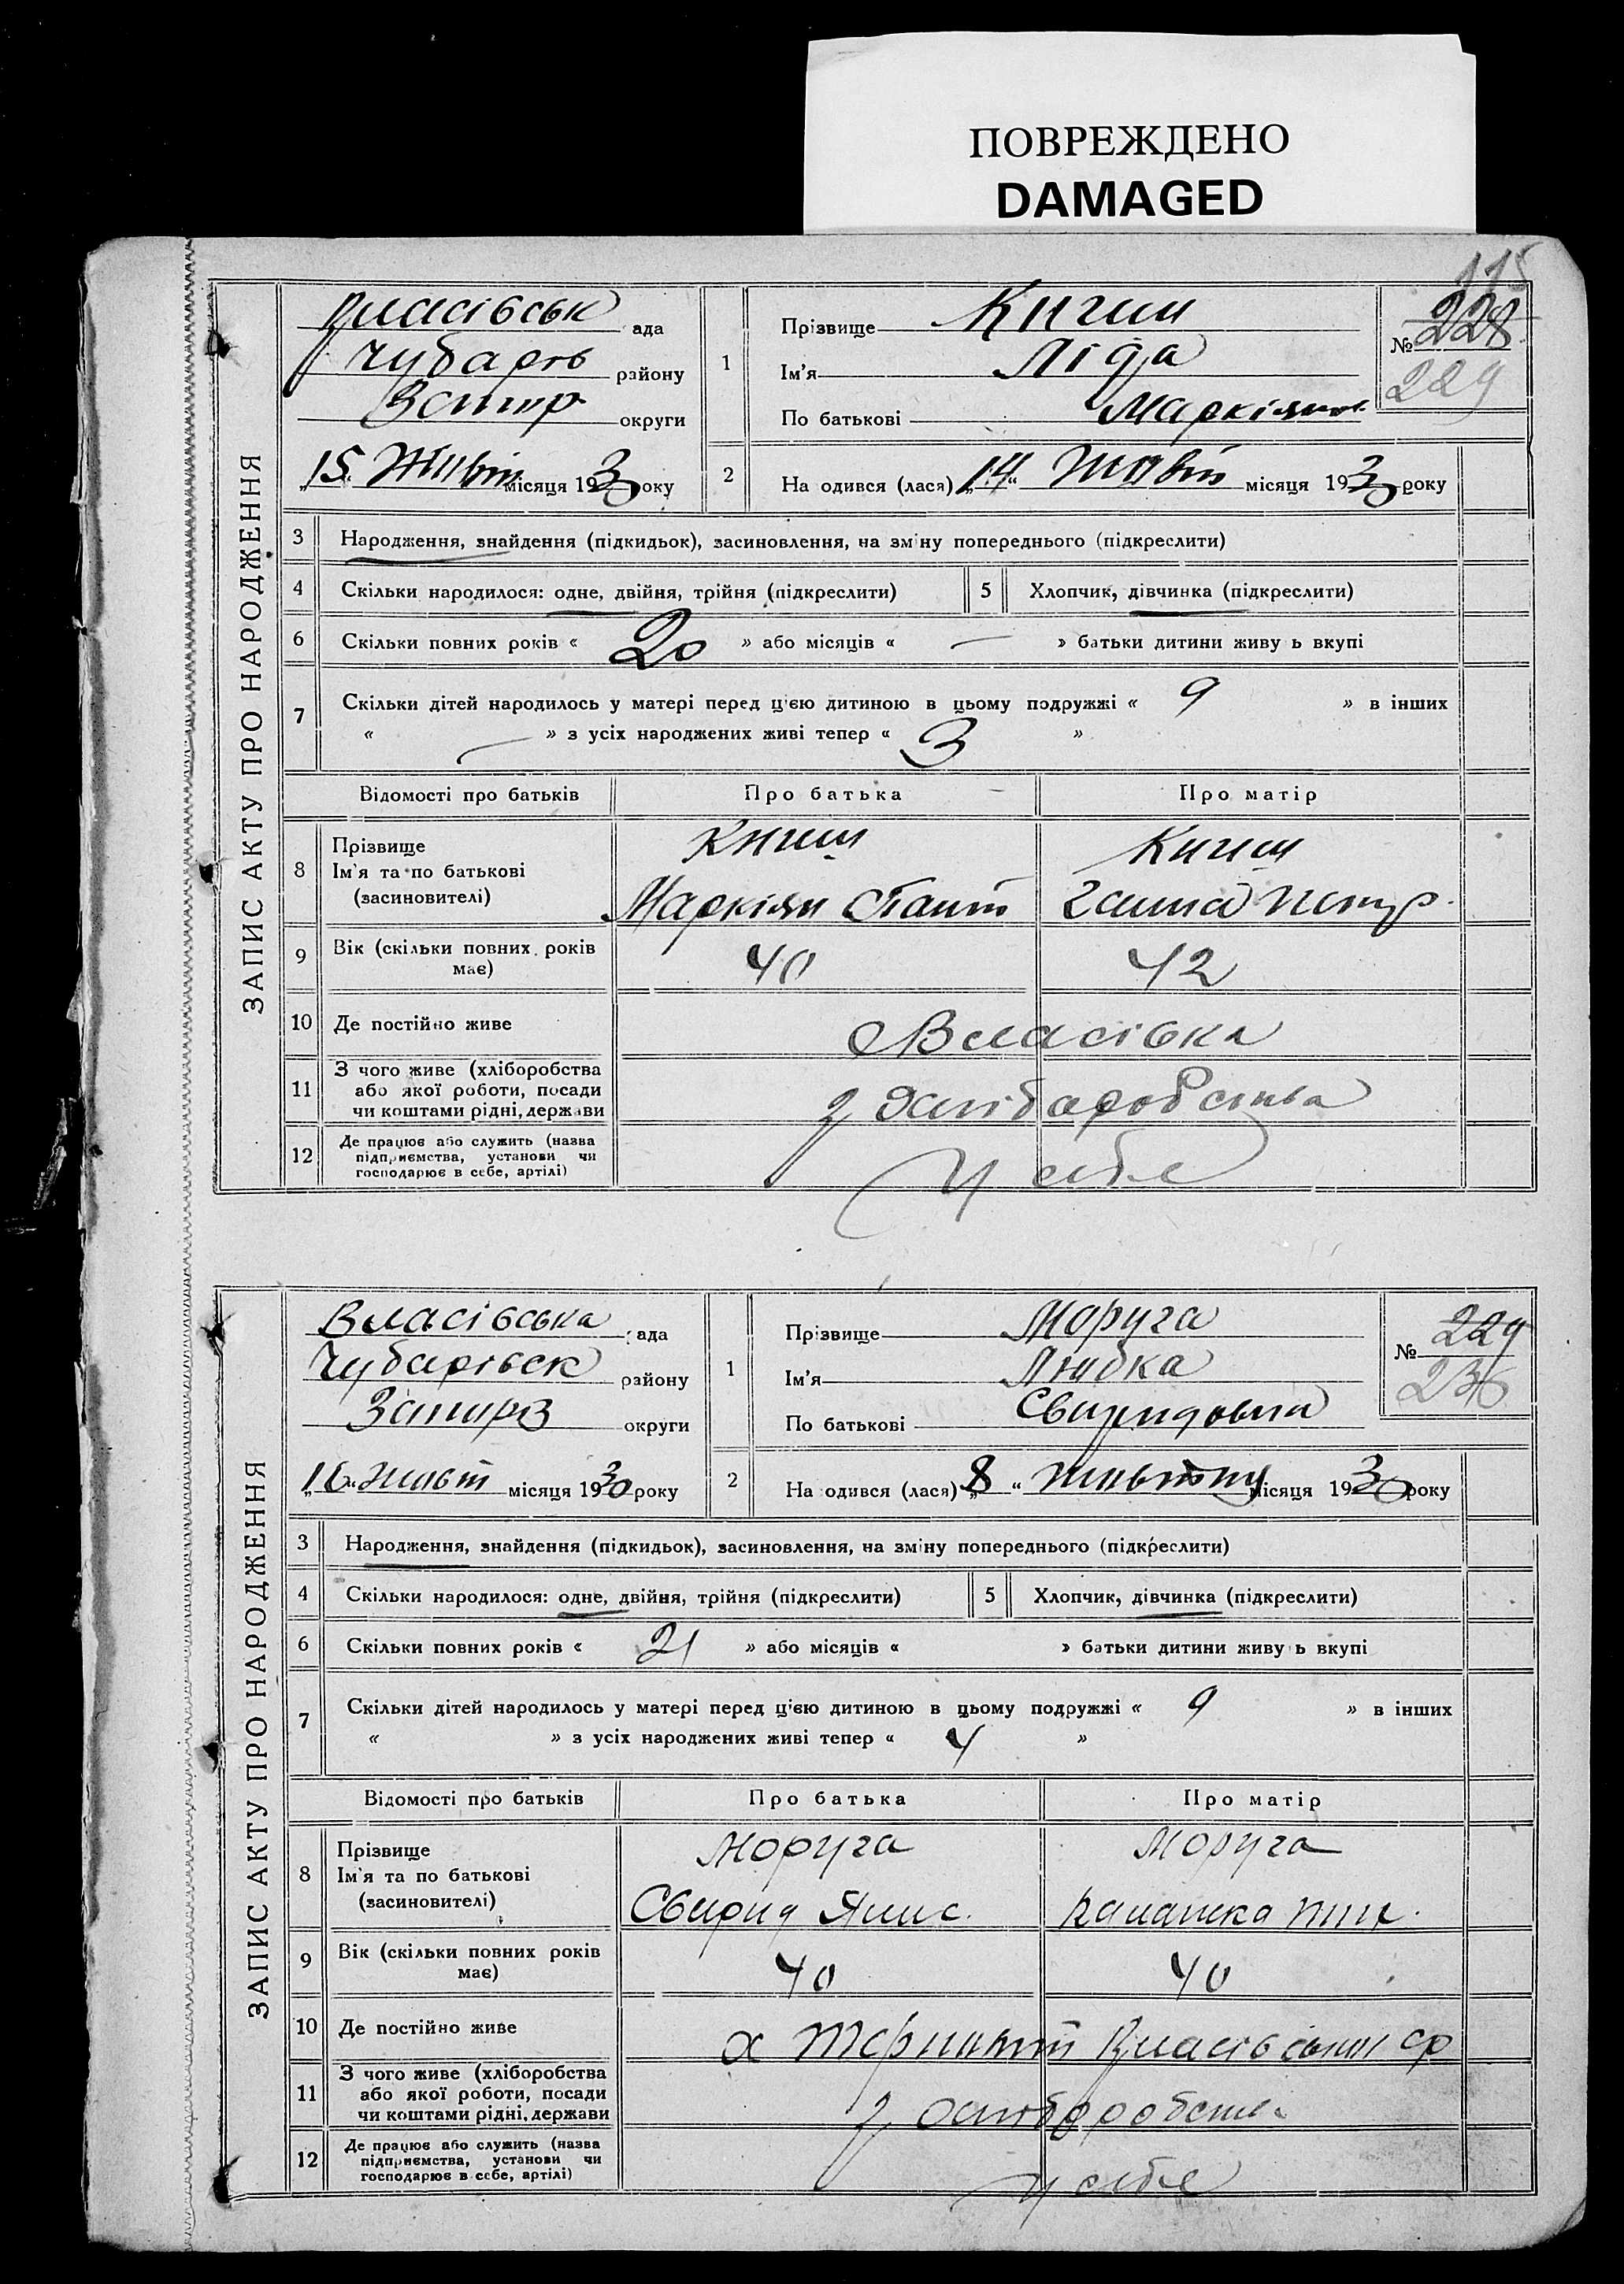 ПОВРЕЖДЕНО
DAMAGED
115
ЗАПИС АКТУ ПРО НАРОДЖЕННЯ
Власівськ ада
Чубарів району
Запор округи
„15“ Жовт місяця 1930 року
1 Прізвище Книш
Ім'я Ліда
По батькові Маркіянов
№ 228
229
2 На одився (лася) „14“ Жовт місяця 1930 року
3 Народження, знайдення (підкидьок), засиновлення, на зміну попереднього (підкреслити)
4 Скільки народилося: одне, двійня, трійня (підкреслити) 5 Хлопчик, дівчинка (підкреслити)
6 Скільки повних років « 20 » або місяців « — » батьки дитини живу ь вкупі
7 Скільки дітей народилось у матері перед цією дитиною в цьому подружжі « 9 » в інших
« — » з усіх народжених живі тепер « 3 »
Відомості про батьків Про батька Про матір
8 Прізвище Ім'я та по батькові (засновителі)
Книш Книш
Маркіян Ганна
9 Вік (скільки повних років має) 40 42
10 Де постійно живе Власівка
11 З чого живе (хліборобства або якої роботи, посади чи коштами рідні, держави
з хліборобства
12 Де працює або служить (назва підприємства, установи чи господарює в себе, артілі)
у себе
ЗАПИС АКТУ ПРО НАРОДЖЕННЯ
Власівська ада
Чубарівськ району
Запорз округи
„16“ Жовт місяця 1930 року
1 Прізвище Моруга
Ім'я Любка
По батькові Свиридовна
№ 229
230
2 На одився (лася) „8“ Жовтня місяця 1930 року
3 Народження, знайдення (підкидьок), засиновлення, на зміну попереднього (підкреслити)
4 Скільки народилося: одне, двійня, трійня (підкреслити) 5 Хлопчик, дівчинка (підкреслити)
6 Скільки повних років « 21 » або місяців « » батьки дитини живу ь вкупі
7 Скільки дітей народилось у матері перед цією дитиною в цьому подружжі « 9 » в інших
« » з усіх народжених живі тепер « 4 »
Відомості про батьків Про батька Про матір
8 Прізвище Ім'я та по батькові (засиновителі)
Моруга Моруга
Свирид
9 Вік (скільки повних років має) 40 40
10 Де постійно живе х Власівської ср
11 З чого живе (хліборобства або якої роботи, посади чи коштами рідні, держави
з хліборобства
12 Де працює або служить (назва підприємства, установи чи господарює в себе, артілі)
у себе